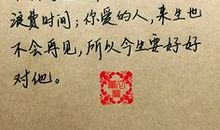 浪费时间；你爱的人，来生也
不会再见，所以今生要好好
对他。